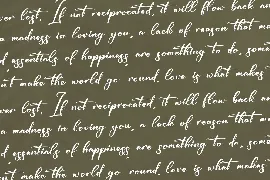 ver lost. If not reciprocated, it will flow back an
a madness in loving you, a lack of reason that mak
d essentials of happiness are something to do, some
n't make the world go round. love is what makes
ver lost. If not reciprocated, it will flow back an
a madness in loving you, a lack of reason that mak
d essentials of happiness are something to do, some
n't make the world go round. love is what makes